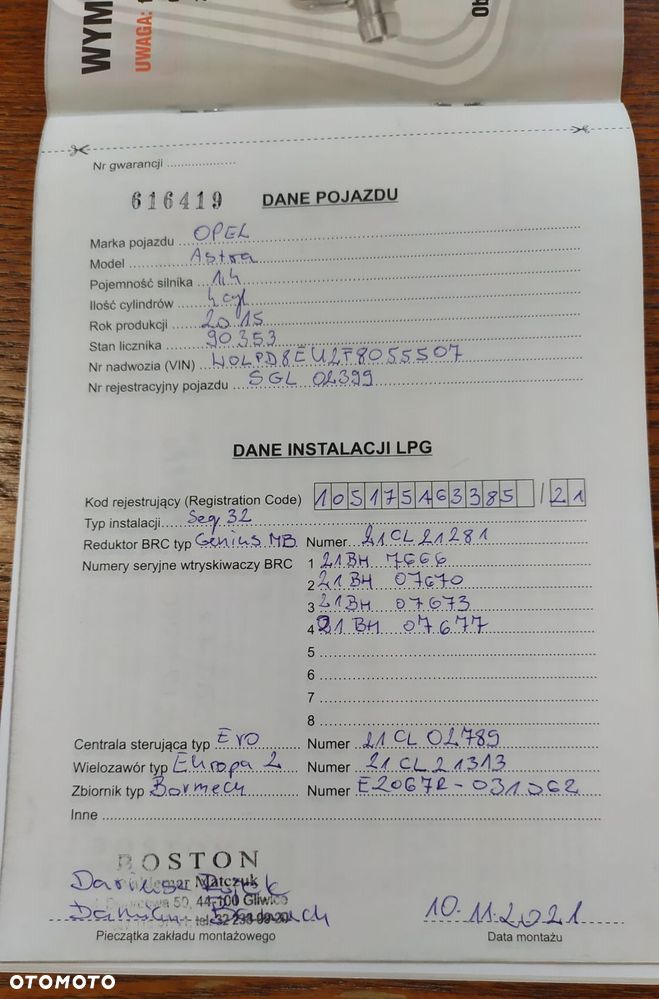 WYM
UWAGA: 1
Ob
Nr gwarancji
616419 DANE POJAZDU
Marka pojazdu OPEL
Model Astra
Pojemność silnika 1,4
Ilość cylindrów 4 cyl
Rok produkcji 2015
Stan licznika 90353
Nr nadwozia (VIN) W0LPD8EU2F8055507
Nr rejestracyjny pojazdu SGL 02399
DANE INSTALACJI LPG
Kod rejestrujący (Registration Code) 105175463385 / 21
Typ instalacji Seq 32
Reduktor BRC typ Genius MB Numer 21CL21281
Numery seryjne wtryskiwaczy BRC 1 21BH 7666
2 21BH 07670
3 21BH 07673
4 21BH 07677
5
6
7
8
Centrala sterująca typ Evo Numer 21CL02789
Wielozawór typ Europa 2 Numer 21CL21313
Zbiornik typ Bormech Numer E2067R-031062
Inne
BOSTON
Dariusz
Matczuk
50, 44-100 Gliwice
Damian
tel. 32 238-99-20
10.11.2021
Pieczątka zakładu montażowego Data montażu
OTOMOTO